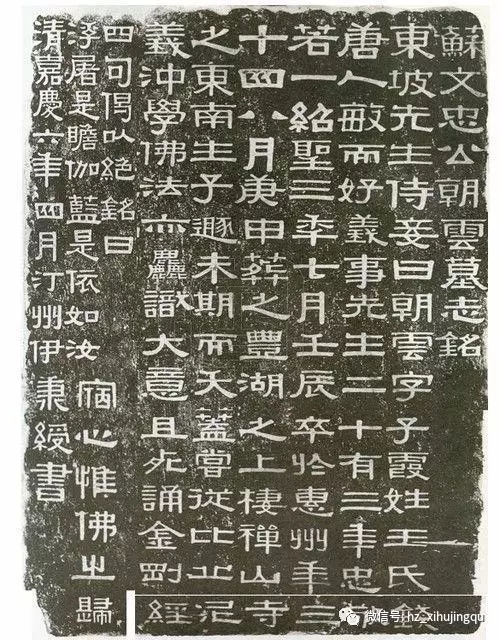 蘇文忠公朝雲墓志銘
東坡先生侍妾曰朝雲字子霞姓王氏錢
唐人敏而好義事先生二十有三年忠敬
若一紹聖三年七月壬辰卒於惠州年三
十四八月庚申葬之豐湖之上棲禪山寺
之東南生子遯未期而夭蓋嘗從比丘尼
義沖學佛法亦麤識大意且死誦金剛經
四句偈以絕銘曰
浮屠是瞻伽藍是依如汝宿心惟佛之歸
清嘉慶六年四月汀州伊秉綬書
微信号: hz_xihujingqu